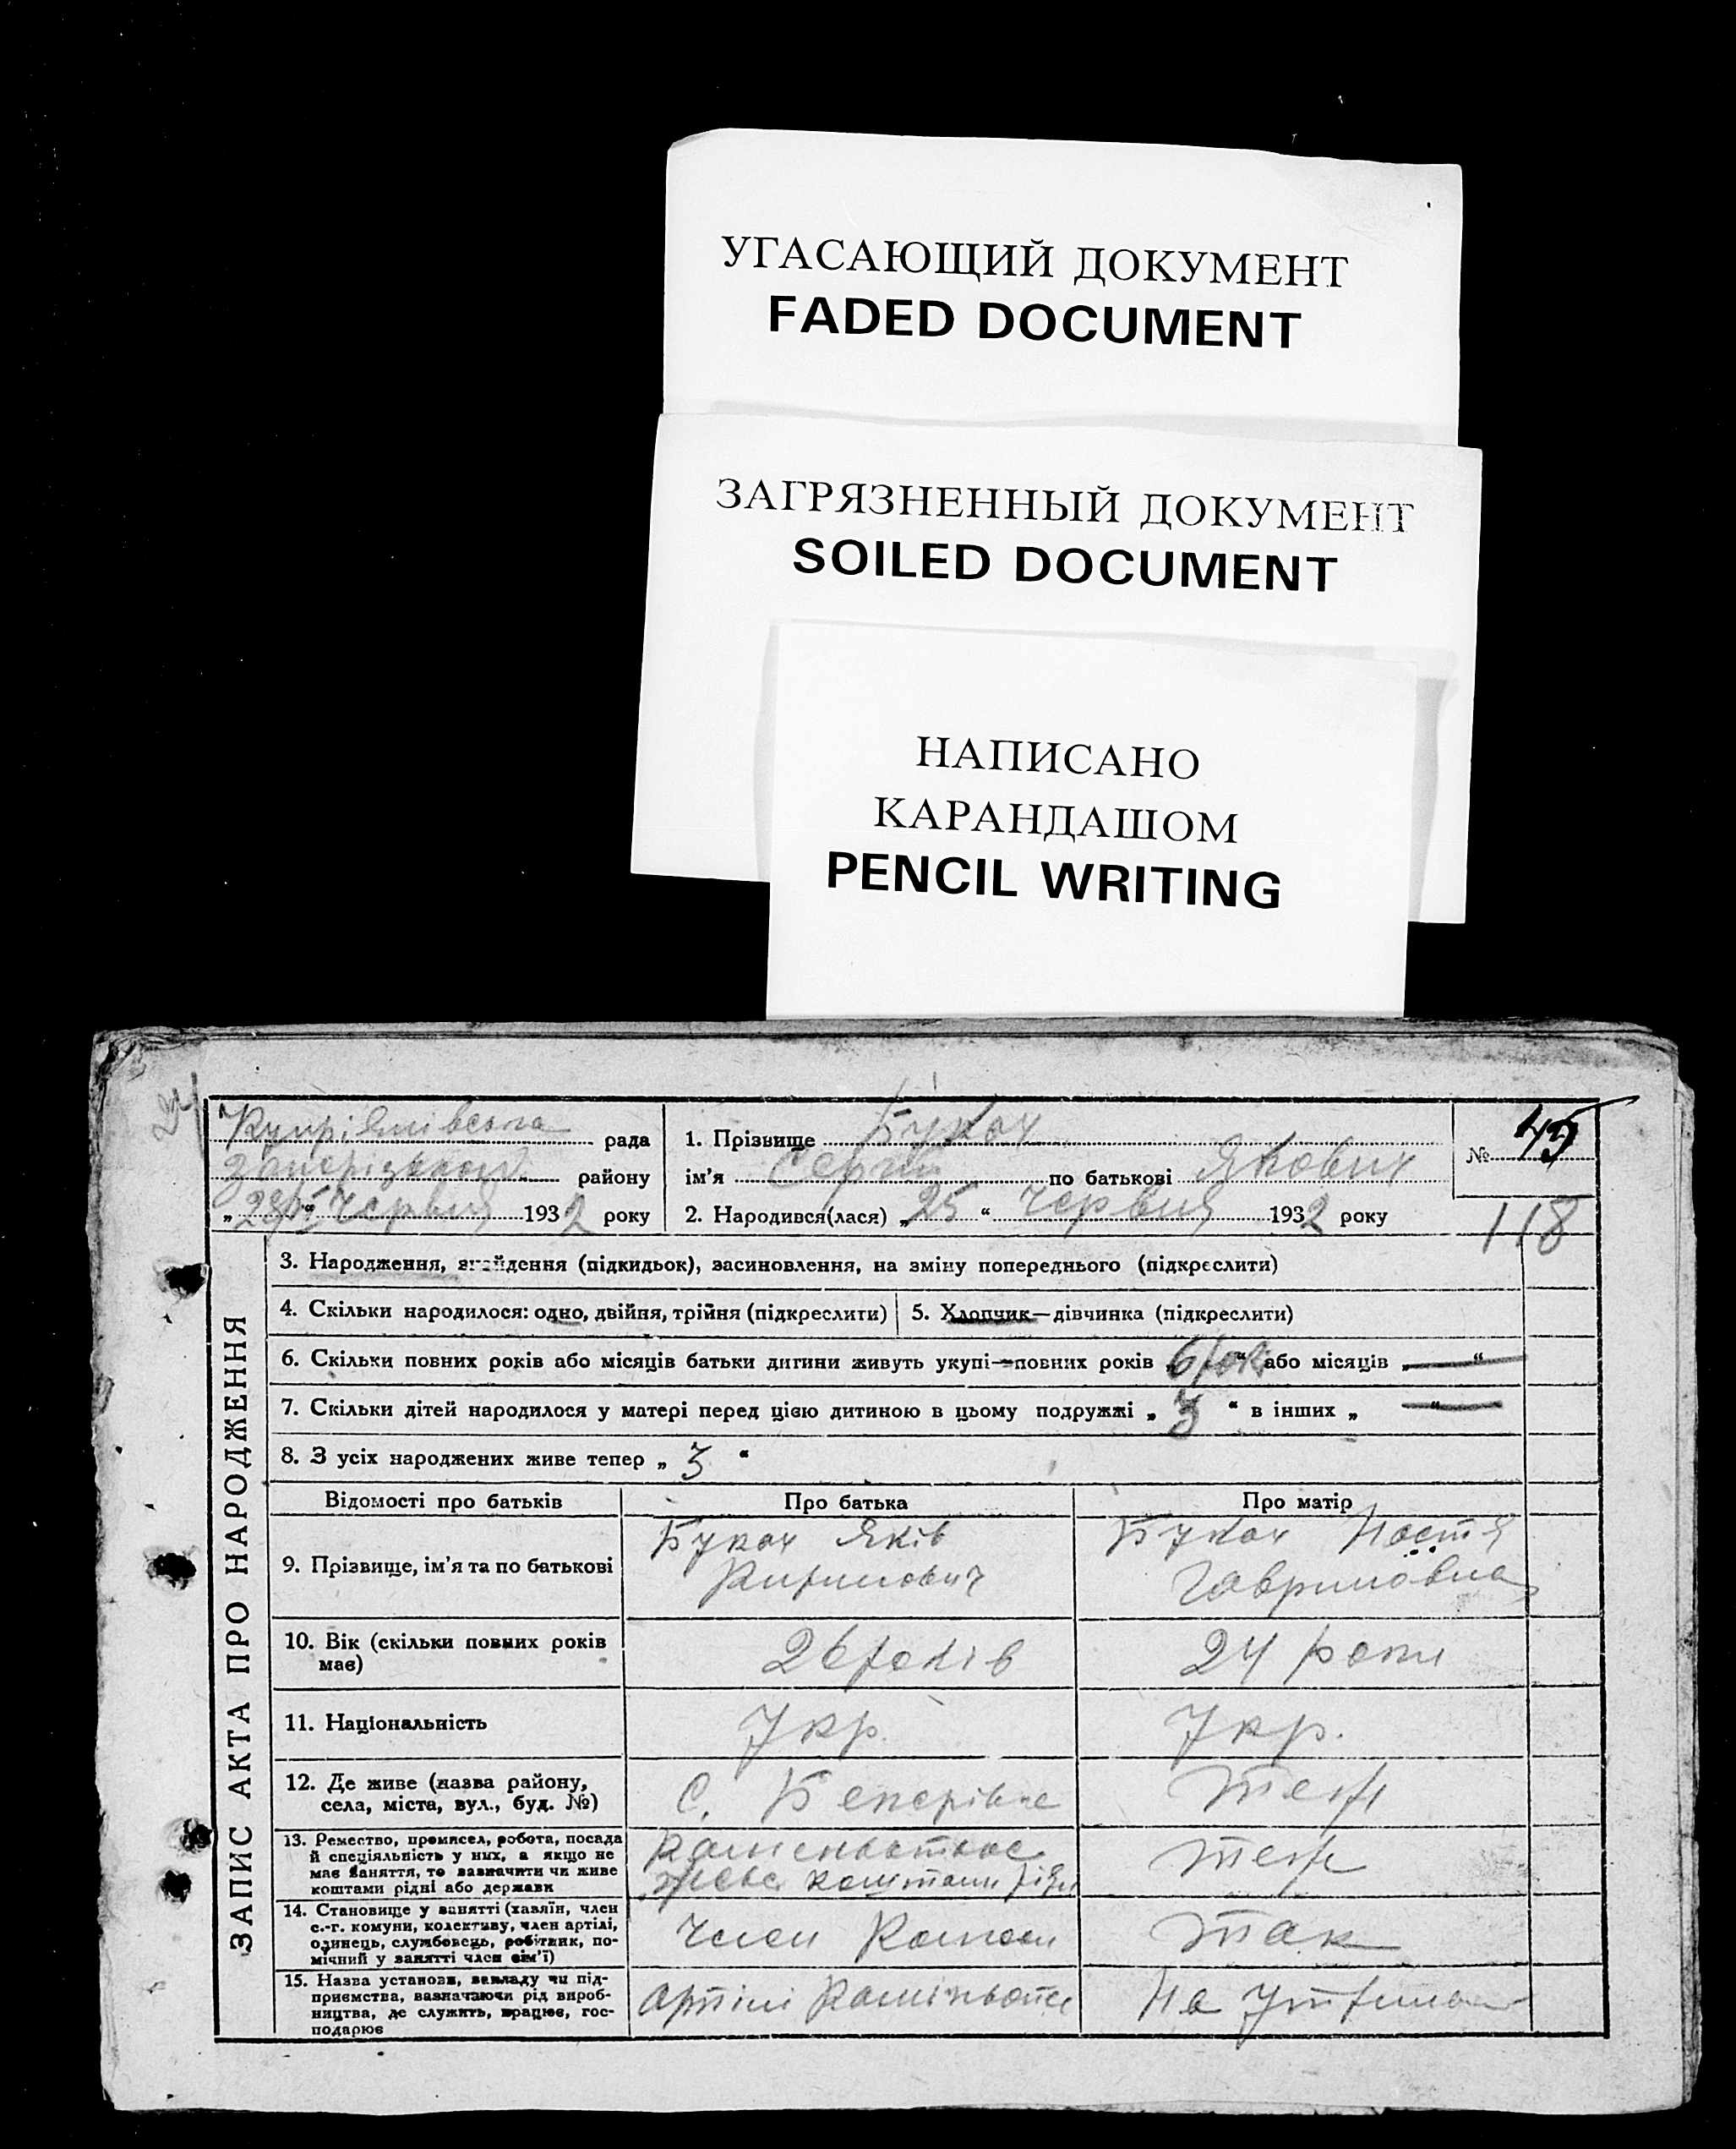 УГАСАЮЩИЙ ДОКУМЕНТ
FADED DOCUMENT
ЗАГРЯЗНЕННЫЙ ДОКУМЕНТ
SOILED DOCUMENT
НАПИСАНО
КАРАНДАШОМ
PENCIL WRITING
рада
району
Червня 1932 року
1. Прізвище Букач
ім'я Сергій по батькові Якович
2. Народився(лася) „25“ Червня 1932 року
№ 45
118
ЗАПИС АКТА ПРО НАРОДЖЕННЯ
3. Народження, знайдення (підкидьок), засиновлення, на зміну попереднього (підкреслити)
4. Скільки народилося: одно, двійня, трійня (підкреслити)
5. Хлопчик—дівчинка (підкреслити)
6. Скільки повних років або місяців батьки дитини живуть укупі—повних років „6 рок“ або місяців „—“
7. Скільки дітей народилося у матері перед цією дитиною в цьому подружжі „3“ в інших „—“
8. З усіх народжених живе тепер „3“
Відомості про батьків
Про батька
Про матір
9. Прізвище, ім'я та по батькові
Букач Яків
Кирилович
Букач Настя
Гавриловна
10. Вік (скільки повних років
має)
26 років
24 роки
11. Національність
Укр.
Укр.
12. Де живе (назва району,
села, міста, вул., буд. №)
с.
теж
13. Ремество, промисел, робота, посада
й спеціяльність у них, а якщо не
має заняття, то зазначити чи живе
коштами рідні або держави
коштами
теж
14. Становище у занятті (хазяїн, член
с.-г. комуни, колективу, член артілі,
одинець, службовець, робітник, по-
мічний у занятті член сім'ї)
Член
так
15. Назва установи, закладу чи під-
приємства, вазначаючи рід вироб-
ництва, де служить, працює, гос-
подарює
Артілі
На